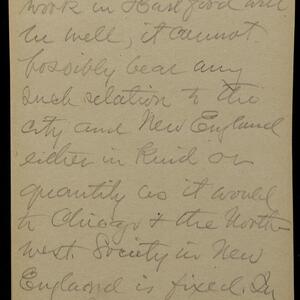 work in Hartford will
be well, it cannot
possibly bear any
such relation to the
city and New England
either in kind or
quantity as it would
to Chicago & the North-
west. Society in New
England is fixed. In